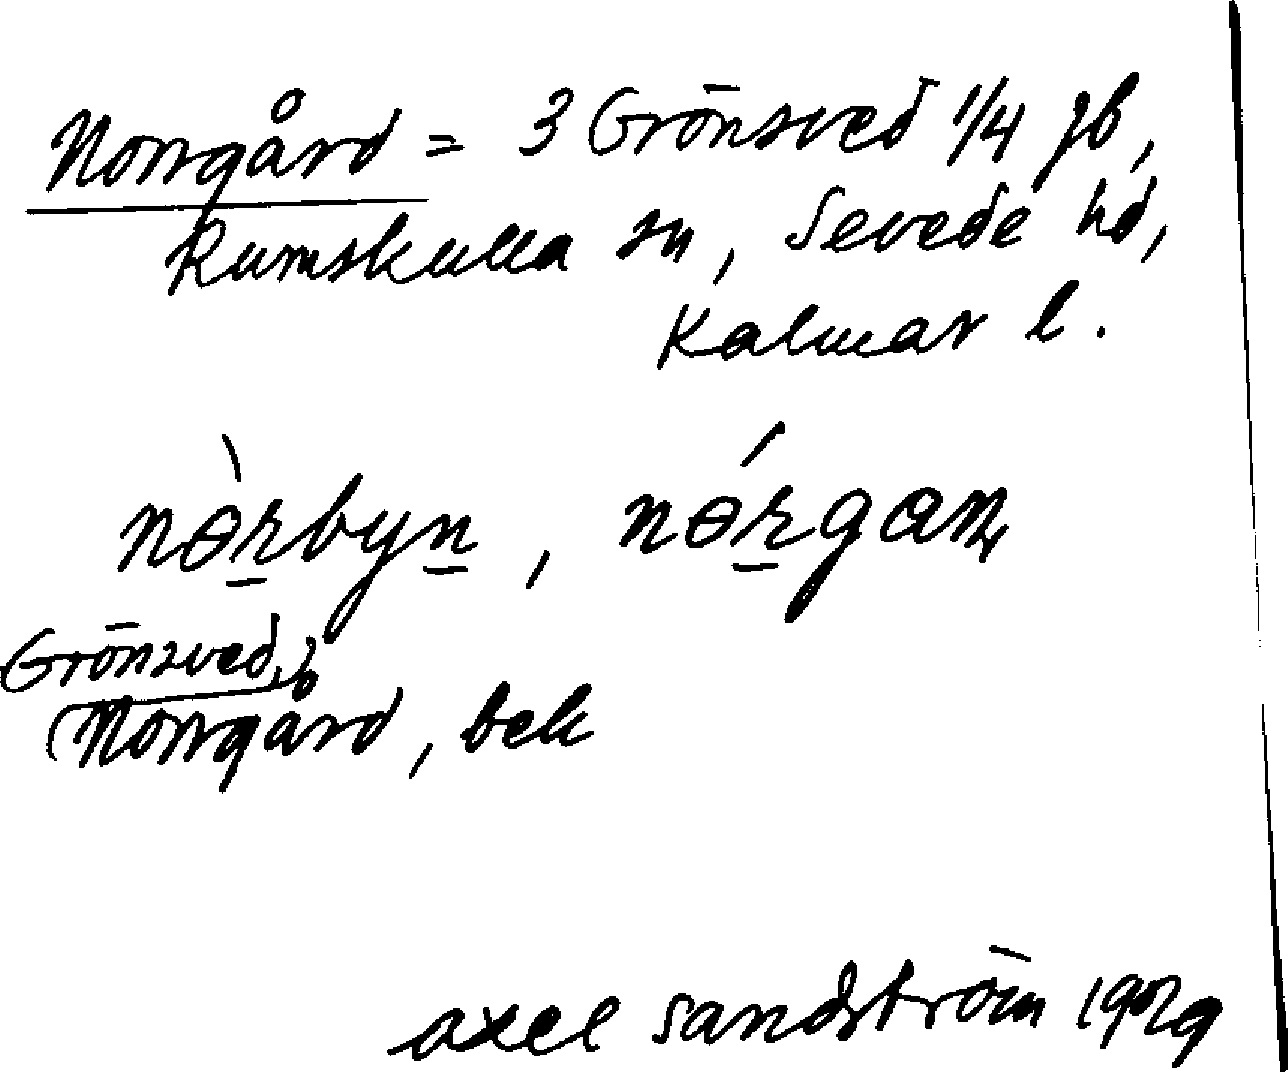 Norrgård = 3 Grönsved 1/4 jb,
Rumskulla sn, Sevede hd,
Kalmar l.
nɵ̀rbyn, nɵ́rgaɳ
Grönsved, 3
(Norrgård, bek
Axel Sandström 1929